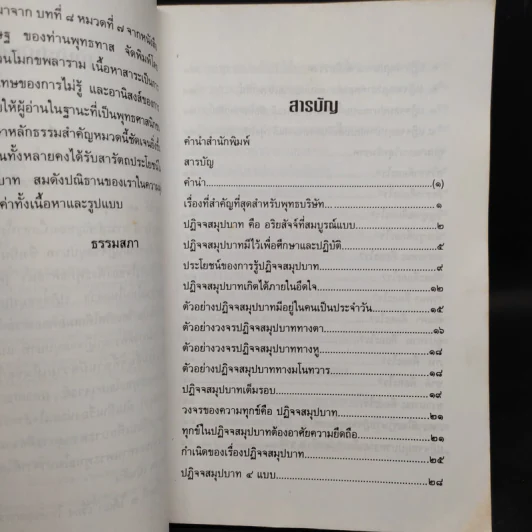 มาจาก บทที่ ๘ หมวดที่ ๗ จากหนังสือ
ของท่านพุทธทาส จัดพิมพ์โดย
วนโมกขพลาราม เนื้อหาสาระเป็นการ
โทษของการไม่รู้ และอานิสงส์ของการ
ให้ผู้อ่านในฐานะที่เป็นพุทธศาสนิกชน
หลักธรรมสำคัญหมวดนี้ชัดเจนยิ่งขึ้น
ทั้งหลายคงได้รับสารัตถประโยชน์
บาท สมดังปณิธานของเราในความ
ค่าทั้งเนื้อหาและรูปแบบ
ธรรมสภา
สารบัญ
คำนำสำนักพิมพ์
สารบัญ
คำนำ.....(๑)
เรื่องที่สำคัญที่สุดสำหรับพุทธบริษัท.....๑
ปฏิจจสมุปบาท คือ อริยสัจจ์ที่สมบูรณ์แบบ.....๒
ปฏิจจสมุปบาทมีไว้เพื่อศึกษาและปฏิบัติ.....๕
ประโยชน์ของการรู้ปฏิจจสมุปบาท.....๙
ปฏิจจสมุปบาทเกิดได้ภายในอึดใจ.....๑๒
ตัวอย่างปฏิจจสมุปบาทมีอยู่ในคนเป็นประจำวัน.....๑๕
ตัวอย่างวงจรปฏิจจสมุปบาททางตา.....๑๖
ตัวอย่างวงจรปฏิจจสมุปบาททางหู.....๑๘
ตัวอย่างปฏิจจสมุปบาททางมโนทวาร.....๑๘
ปฏิจจสมุปบาทเต็มรอบ.....๑๙
วงจรของความทุกข์คือ ปฏิจจสมุปบาท.....๒๑
ทุกข์ในปฏิจจสมุปบาทต้องอาศัยความยึดถือ.....๒๑
กำเนิดของเรื่องปฏิจจสมุปบาท.....๒๕
ปฏิจจสมุปบาท ๔ แบบ.....๒๘